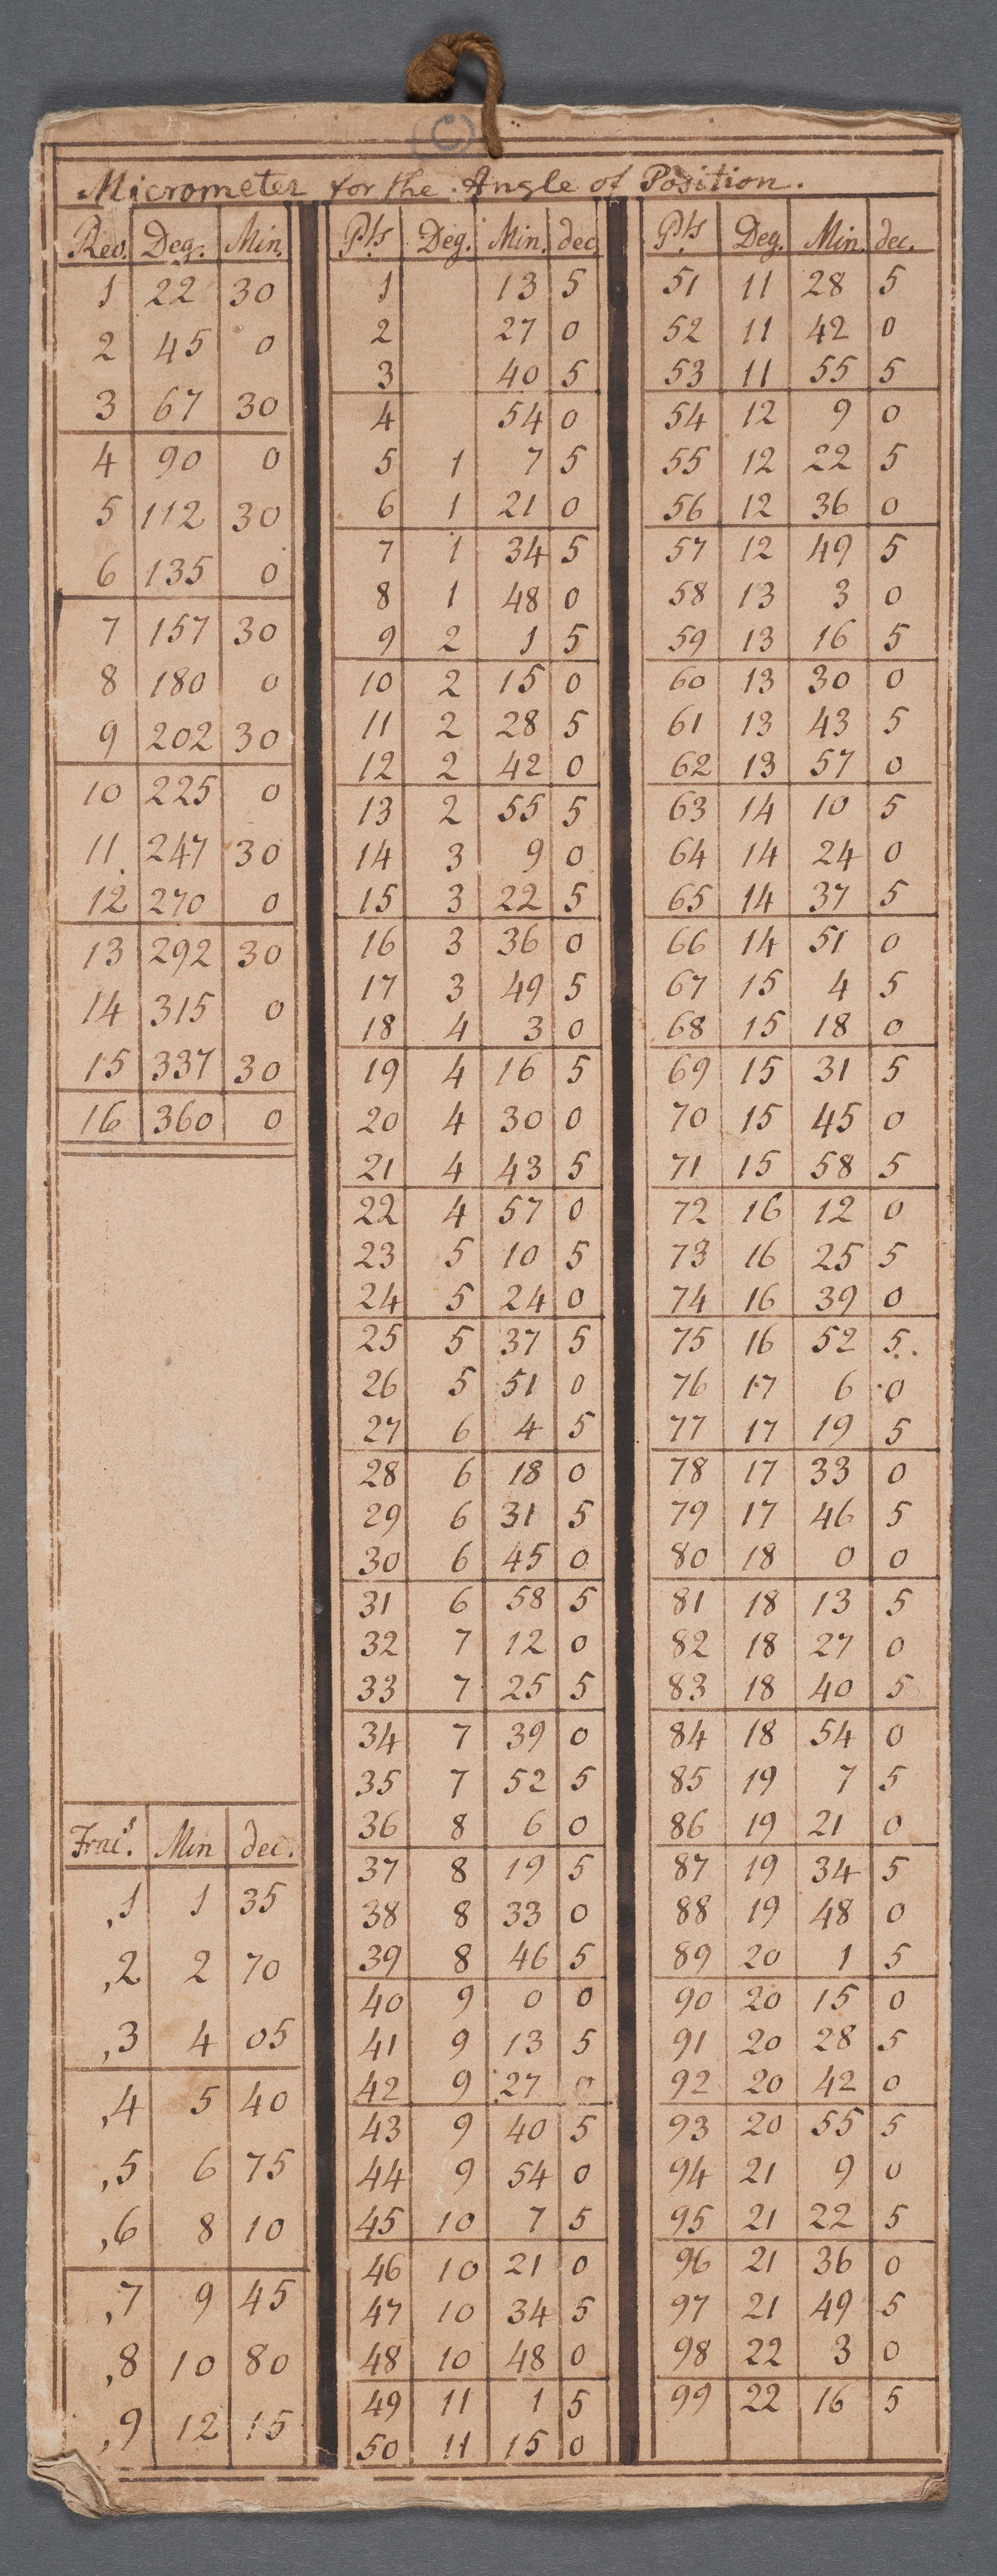 (C)
Micrometer for the Angle of Position.
Rev. Deg. Min.
1 22 30
2 45 0
3 67 30
4 90 0
5 112 30
6 135 0
7 157 30
8 180 0
9 202 30
10 225 0
11 247 30
12 270 0
13 292 30
14 315 0
15 337 30
16 360 0
Frac.s Min dec.
,1 1 35
,2 2 70
,3 4 05
,4 5 40
,5 6 75
,6 8 10
,7 9 45
,8 10 80
,9 12 15
Pts Deg. Min. dec.
1 13 5
2 27 0
3 40 5
4 54 0
5 1 7 5
6 1 21 0
7 1 34 5
8 1 48 0
9 2 1 5
10 2 15 0
11 2 28 5
12 2 42 0
13 2 55 5
14 3 9 0
15 3 22 5
16 3 36 0
17 3 49 5
18 4 3 0
19 4 16 5
20 4 30 0
21 4 43 5
22 4 57 0
23 5 10 5
24 5 24 0
25 5 37 5
26 5 51 0
27 6 4 5
28 6 18 0
29 6 31 5
30 6 45 0
31 6 58 5
32 7 12 0
33 7 25 5
34 7 39 0
35 7 52 5
36 8 6 0
37 8 19 5
38 8 33 0
39 8 46 5
40 9 0 0
41 9 13 5
42 9 27 0
43 9 40 5
44 9 54 0
45 10 7 5
46 10 21 0
47 10 34 5
48 10 48 0
49 11 1 5
50 11 15 0
Pts Deg. Min. dec.
51 11 28 5
52 11 42 0
53 11 55 5
54 12 9 0
55 12 22 5
56 12 36 0
57 12 49 5
58 13 3 0
59 13 16 5
60 13 30 0
61 13 43 5
62 13 57 0
63 14 10 5
64 14 24 0
65 14 37 5
66 14 51 0
67 15 4 5
68 15 18 0
69 15 31 5
70 15 45 0
71 15 58 5
72 16 12 0
73 16 25 5
74 16 39 0
75 16 52 5
76 17 6 0
77 17 19 5
78 17 33 0
79 17 46 5
80 18 0 0
81 18 13 5
82 18 27 0
83 18 40 5
84 18 54 0
85 19 7 5
86 19 21 0
87 19 34 5
88 19 48 0
89 20 1 5
90 20 15 0
91 20 28 5
92 20 42 0
93 20 55 5
94 21 9 0
95 21 22 5
96 21 36 0
97 21 49 5
98 22 3 0
99 22 16 5